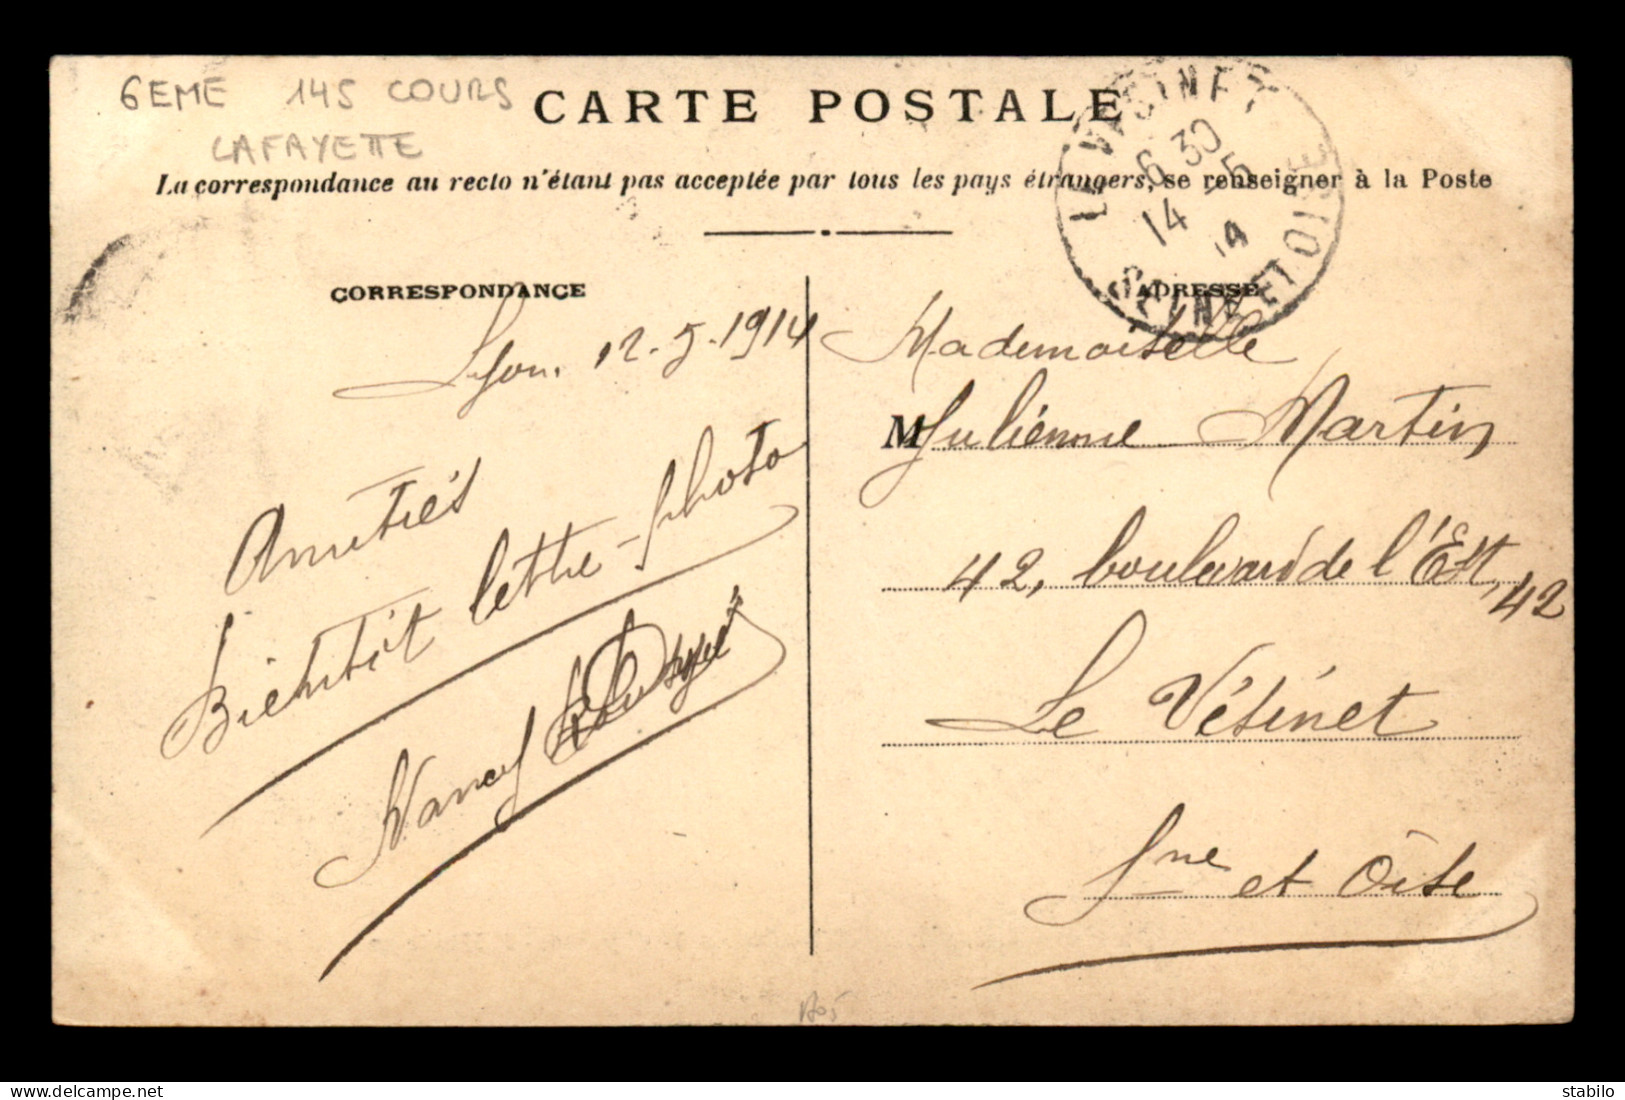 6EME 145 COURS
LAFAYETTE
CARTE POSTALE
La correspondance au recto n'étant pas acceptée par tous les pays étrangers, se renseigner à la Poste
LE VESINET
6 30
14 - 5
14
SEINE ET OISE
CORRESPONDANCE
Lyon. 12-5-1914
Amitiés
Bientôt lettre-photo
Nancy
ADRESSE
Mademoiselle
M Julienne Martin
42, boulevard de l'Est, 42
Le Vésinet
Sne et Oise
delcampe.net
stabilo